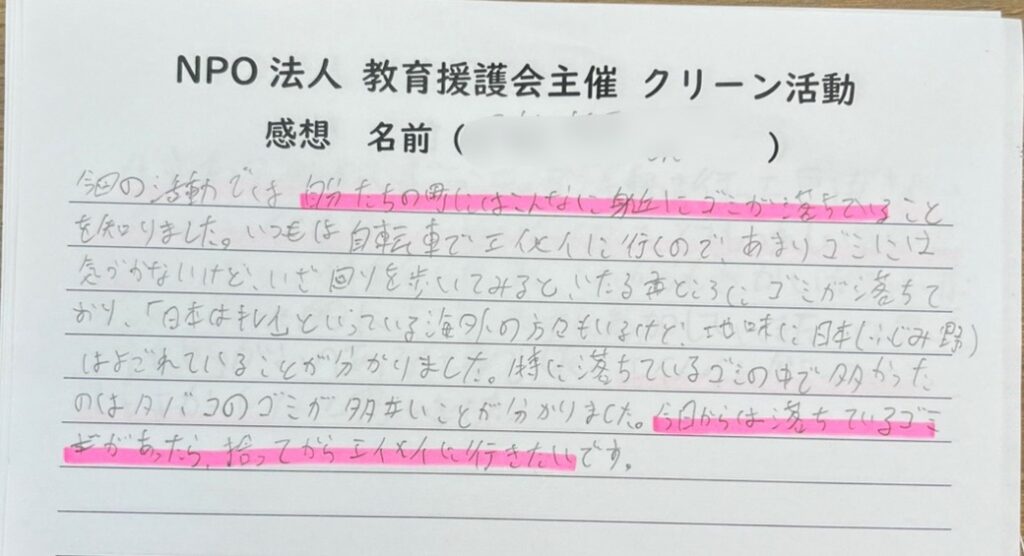 NPO 法人 教育援護会主催 クリーン活動
感想 名前 ( )
今回の活動では 自分たちの町にはこんなに身近にゴミが落ちていること
を知りました。いつもは自転車でエイメイに行くので、あまりゴミには
気づかないけど、いざ回りを歩いてみると、いたるところにゴミが落ちて
おり、「日本はキレイ」といっている海外の方々もいるけど、地味に日本(ふじみ野)
はよごれていることが分かりました。特に落ちているゴミの中で多かった
のはタバコのゴミが多いことが分かりました。今日からは落ちているゴミ
があったら、拾ってからエイメイに行きたいです。